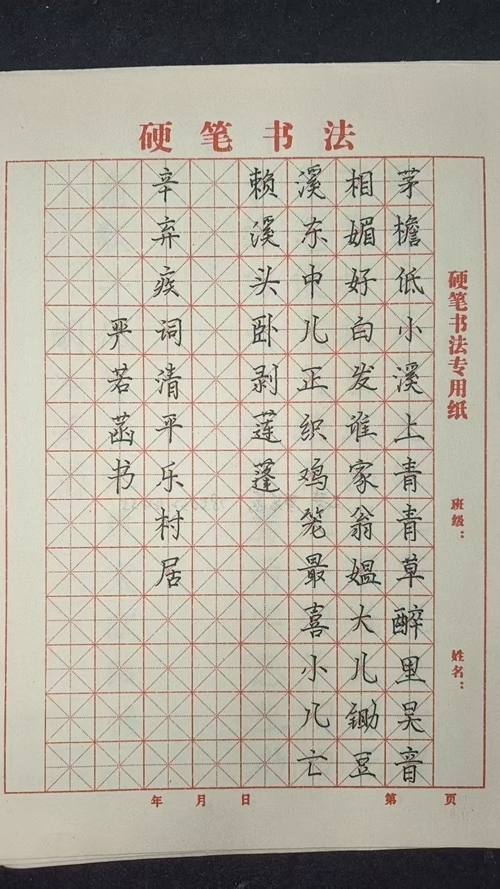 硬笔书法
硬笔书法专用纸
班级：
姓名：
茅檐低小溪上青青草醉里吴音
相媚好白发谁家翁媪大儿锄豆
溪东中儿正织鸡笼最喜小儿亡
赖溪头卧剥莲蓬
辛弃疾词清平乐村居
严若菡书
年 月 日 第 页